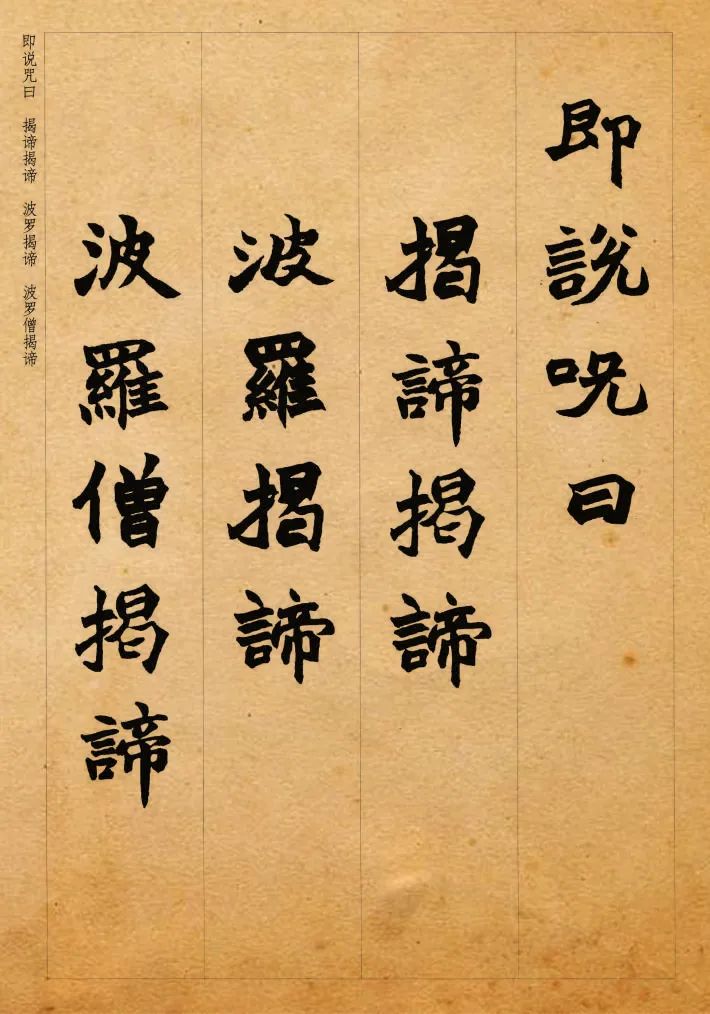 即說呪曰
揭諦揭諦
波羅揭諦
波羅僧揭諦
即说咒曰 揭谛揭谛 波罗揭谛 波罗僧揭谛